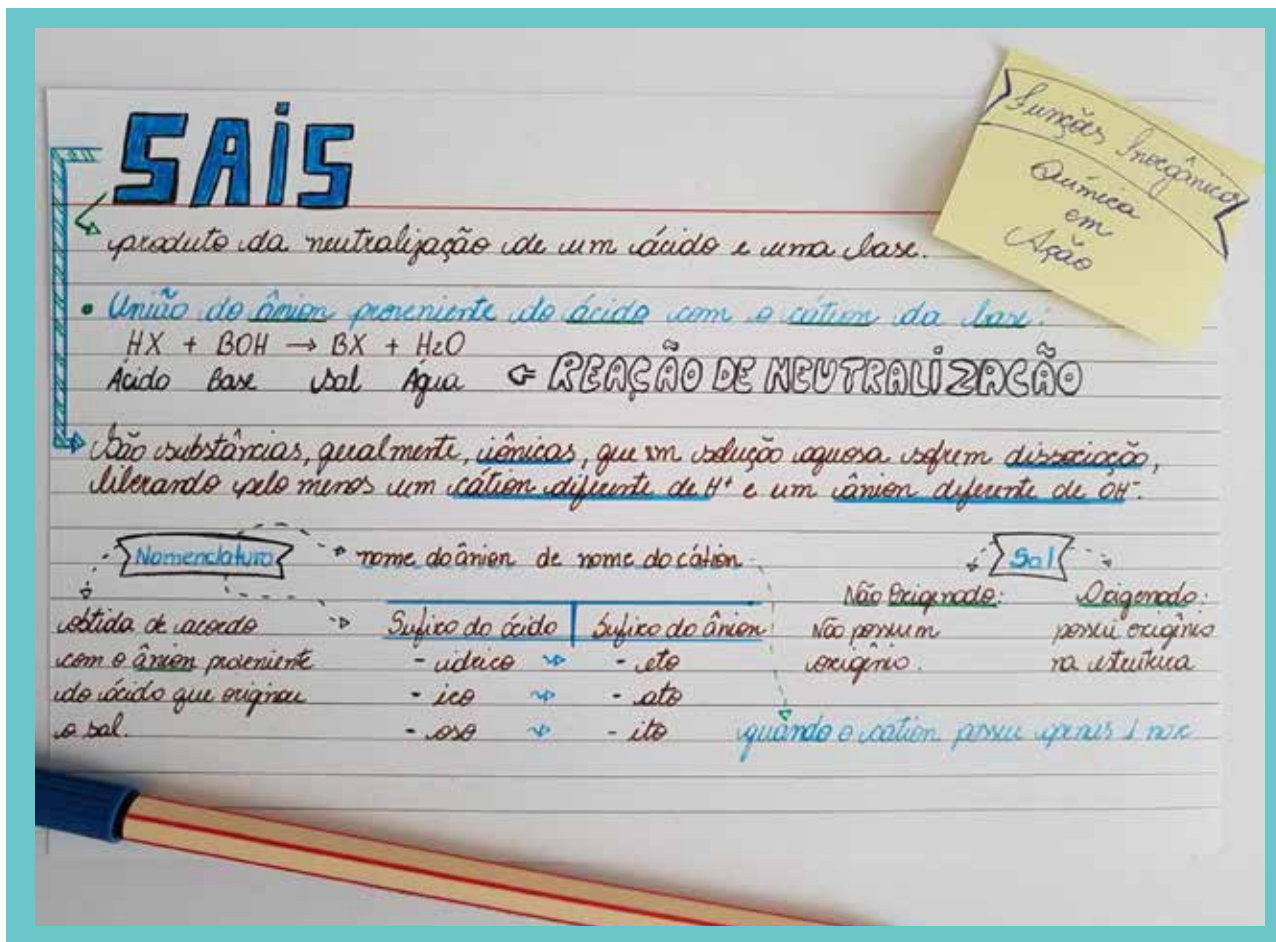 SAIS
Funções Inorgânicas
Química
em
Ação
produto da neutralização de um ácido e uma base.
• União do ânion proveniente do ácido com o cátion da base:
HX + BOH → BX + H₂O
Ácido Base Sal Água ⇐ REAÇÃO DE NEUTRALIZAÇÃO
São substâncias, geralmente, iônicas, que em solução aquosa sofrem dissociação,
liberando pelo menos um cátion diferente de H⁺ e um ânion diferente de OH⁻.
Nomenclatura
nome do ânion de nome do cátion
obtida de acordo
com o ânion proveniente
do ácido que originou
o sal.
Sufixo do ácido | Sufixo do ânion
- ídrico → - eto
- ico → - ato
- oso → - ito
quando o cátion possui apenas 1 nox
Sal
Não Oxigenado:
Não possuem
oxigênio.
Oxigenado:
possui oxigênio
na estrutura